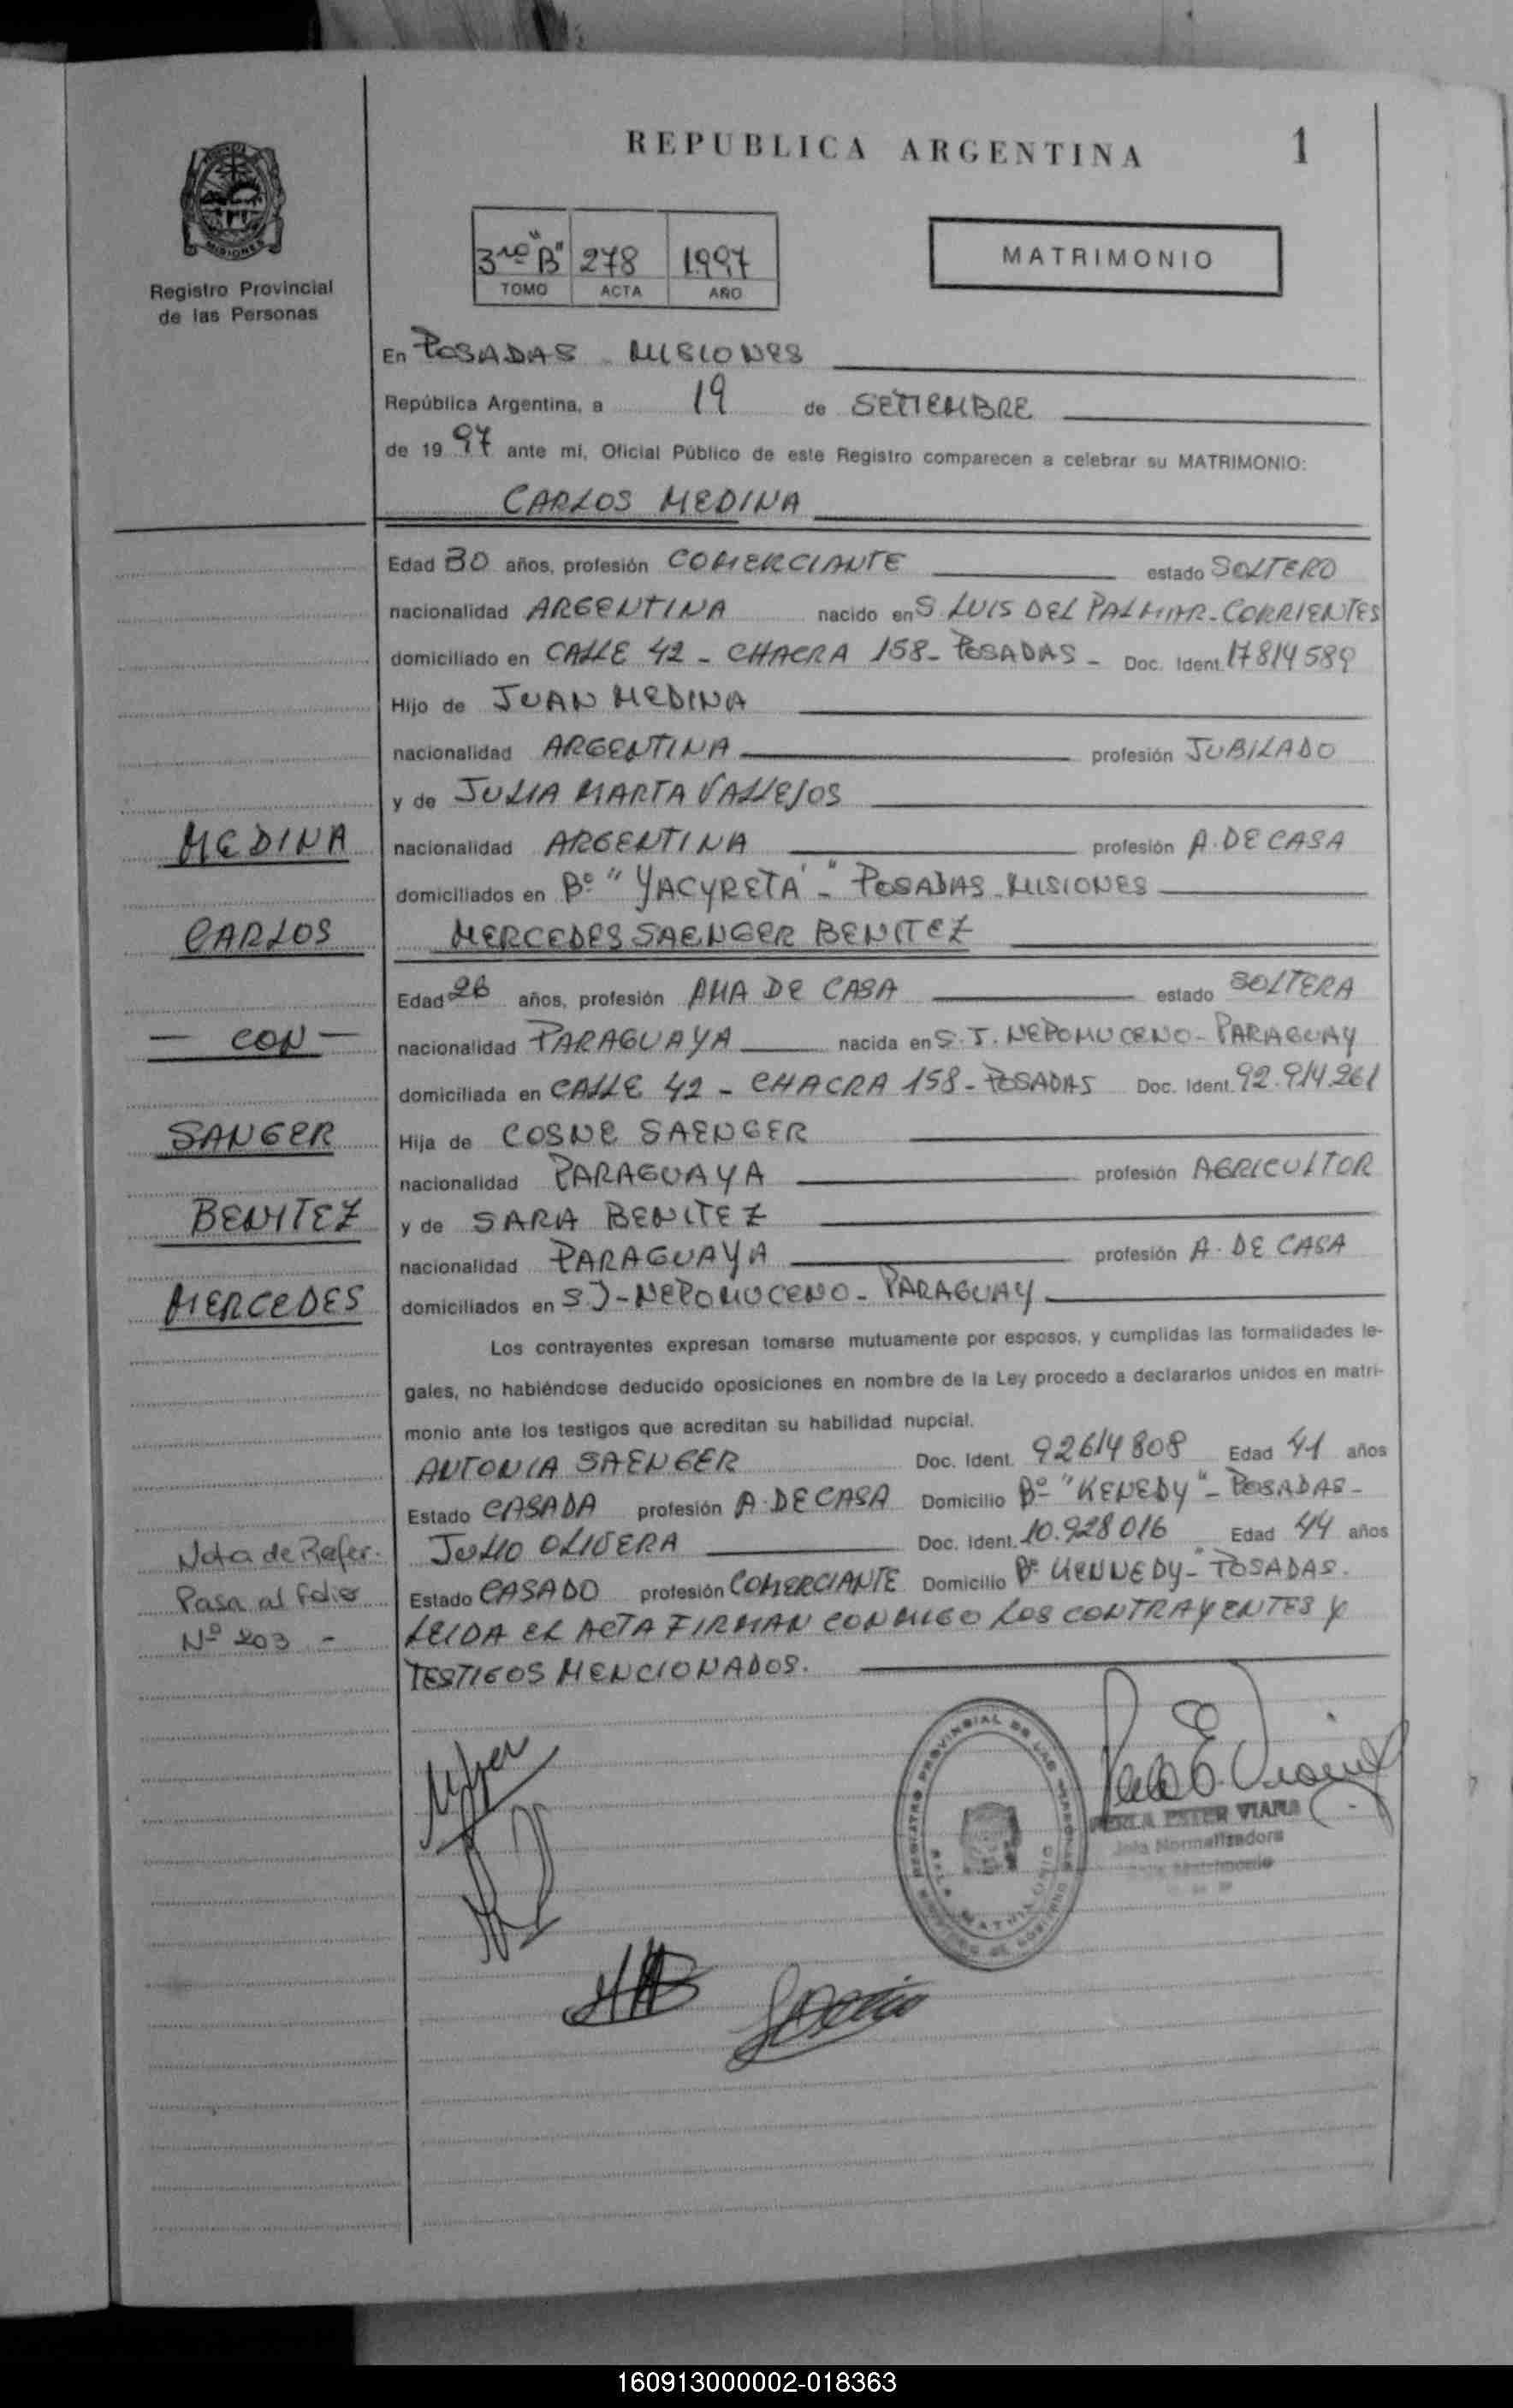 REPUBLICA ARGENTINA 1
MISIONES
Registro Provincial
de las Personas
3ro "B" 278 1997
TOMO ACTA AÑO
MATRIMONIO
En POSADAS - MISIONES
República Argentina, a 19 de SETIEMBRE
de 19 97 ante mi, Oficial Público de este Registro comparecen a celebrar su MATRIMONIO:
CARLOS MEDINA
Edad 30 años, profesión COMERCIANTE estado SOLTERO
nacionalidad ARGENTINA nacido en S. LUIS DEL PALMAR-CORRIENTES
domiciliado en CALLE 42 - CHACRA 158- POSADAS - Doc. Ident. 17814589
Hijo de JUAN MEDINA
nacionalidad ARGENTINA profesión JUBILADO
y de JULIA MARTA VALLEJOS
nacionalidad ARGENTINA profesión A. DE CASA
domiciliados en Bº "YACYRETA"- POSADAS-MISIONES
MERCEDES SAENGER BENITEZ
Edad 26 años, profesión AMA DE CASA estado SOLTERA
nacionalidad PARAGUAYA nacida en S. J. NEPOMUCENO- PARAGUAY
domiciliada en CALLE 42 - CHACRA 158- POSADAS Doc. Ident. 92.914.261
Hija de COSNE SAENGER
nacionalidad PARAGUAYA profesión AGRICULTOR
y de SARA BENITEZ
nacionalidad PARAGUAYA profesión A. DE CASA
domiciliados en S J-NEPOMUCENO- PARAGUAY
Los contrayentes expresan tomarse mutuamente por esposos, y cumplidas las formalidades le-
gales, no habiéndose deducido oposiciones en nombre de la Ley procedo a declararlos unidos en matri-
monio ante los testigos que acreditan su habilidad nupcial.
ANTONIA SAENGER Doc. Ident. 92614808 Edad 41 años
Estado CASADA profesión A. DE CASA Domicilio Bº "KENEDY"- POSADAS-
JULIO OLIVERA Doc. Ident. 10.928016 Edad 44 años
Estado CASADO profesión COMERCIANTE Domicilio Bº KENNEDY-" POSADAS.
LEIDA EL ACTA FIRMAN CONMIGO LOS CONTRAYENTES Y
TESTIGOS MENCIONADOS.
MEDINA
CARLOS
- CON -
SANGER
BENITEZ
MERCEDES
Nota de Refer.
Pasa al folio
Nº 203 -
REGISTRO PROVINCIAL DE LAS PERSONAS
PERLA ESTER VIANA
Jefa Normalizadora
160913000002-018363